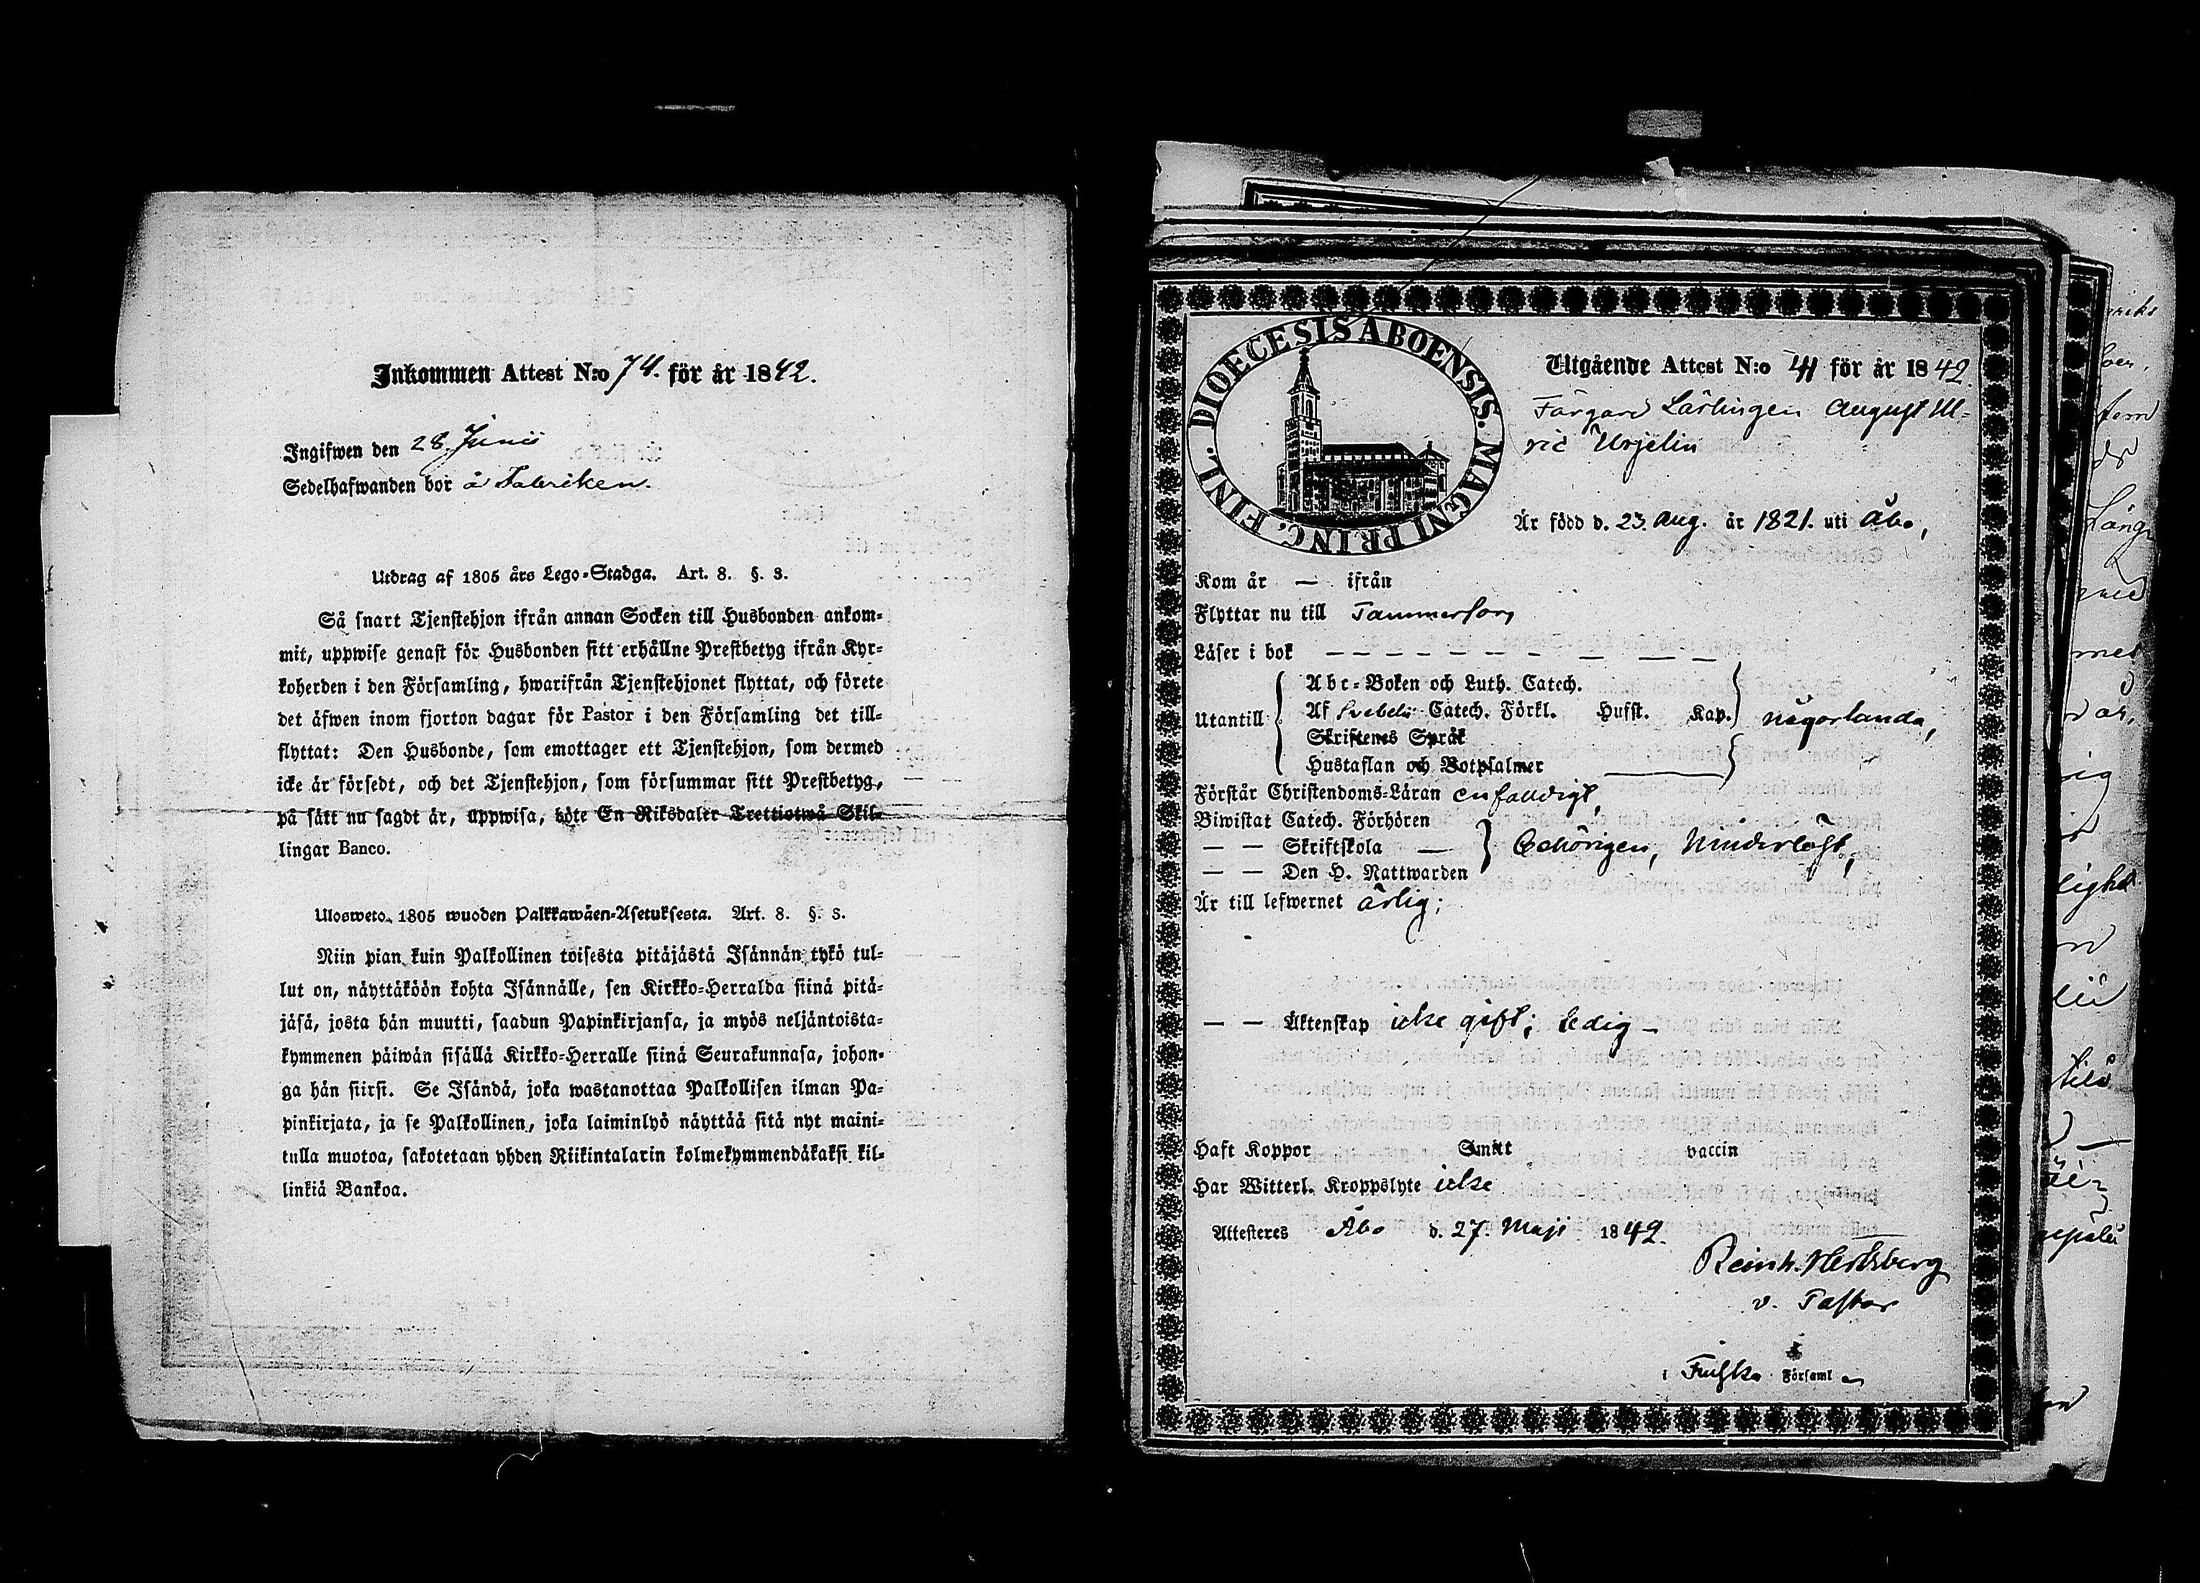 Inkommen Attest N:o 74. för år 1842.
Ingifwen den 28. Junii
Sedelhafwanden bor å Fabriken.
Utdrag af 1805 års Lego-Stadga. Art. 8. §. 3.
Så snart Tjenstehjon ifrån annan Socken till Husbonden ankom-
mit, uppwise genast för Husbonden sitt erhållne Prestbetyg ifrån Kyr-
koherden i den Församling, hwarifrån Tjenstehjonet flyttat, och förete
det äfwen inom fjorton dagar för Pastor i den Församling det till-
flyttat: Den Husbonde, som emottager ett Tjenstehjon, som dermed
icke är försedt, och det Tjenstehjon, som försummar sitt Prestbetyg,
på sätt nu sagdt är, uppwisa, böte En Riksdaler Trettiotwå Skil-
lingar Banco.
Ulosweto 1805 wuoden Palkkawäen-Asetuksesta. Art. 8. §. 3.
Niin pian kuin Palkollinen toisesta pitäjästä Isännän tykö tul-
lut on, näyttäköön kohta Isännälle, sen Kirkko-Herralda siinä pitä-
jäsä, josta hän muutti, saadun Papinkirjansa, ja myös neljäntoista-
kymmenen päiwän sisällä Kirkko-Herralle siinä Seurakunnasa, johon-
ga hän siirsi. Se Isändä, joka wastanottaa Palkollisen ilman Pa-
pinkirjata, ja se Palkollinen, joka laiminlyö näyttää sitä nyt maini-
tulla muotoa, sakotetaan yhden Riikintalarin kolmekymmendäkaksi kil-
linkiä Bankoa.
DIOECESIS ABOENSIS. MAGNI PRINC. FINL.
Utgående Attest N:o 41 för år 1842.
Färgare Lärlingen August Ul-
ric Urjelin
Är född d. 23. Aug. år 1821. uti Åbo,
Kom år — ifrån
Flyttar nu till Tammerfors
Läser i bok — — — — — — — — — —
Utantill
Abc-Boken och Luth. Catech.
Af Svebelii Catech. Förkl. Husst. Kap. någorlunda,
Skriftenes Språk
Hustaflan och Botpsalmer
Förstår Christendoms-Läran enfaldigt,
Biwistat Catech. Förhören
— — Skriftskola — Behörigen,
— — Den H. Nattwarden
Är till lefwernet ärlig;
— — Äktenskap icke gift; ledig —
Haft Koppor Smitt vaccin
Har Witterl. Kroppslyte icke
Attesteres Åbo d. 27. Maji 1842.
Reinh. Hertsberg
v. Pastor
i Finska Församl